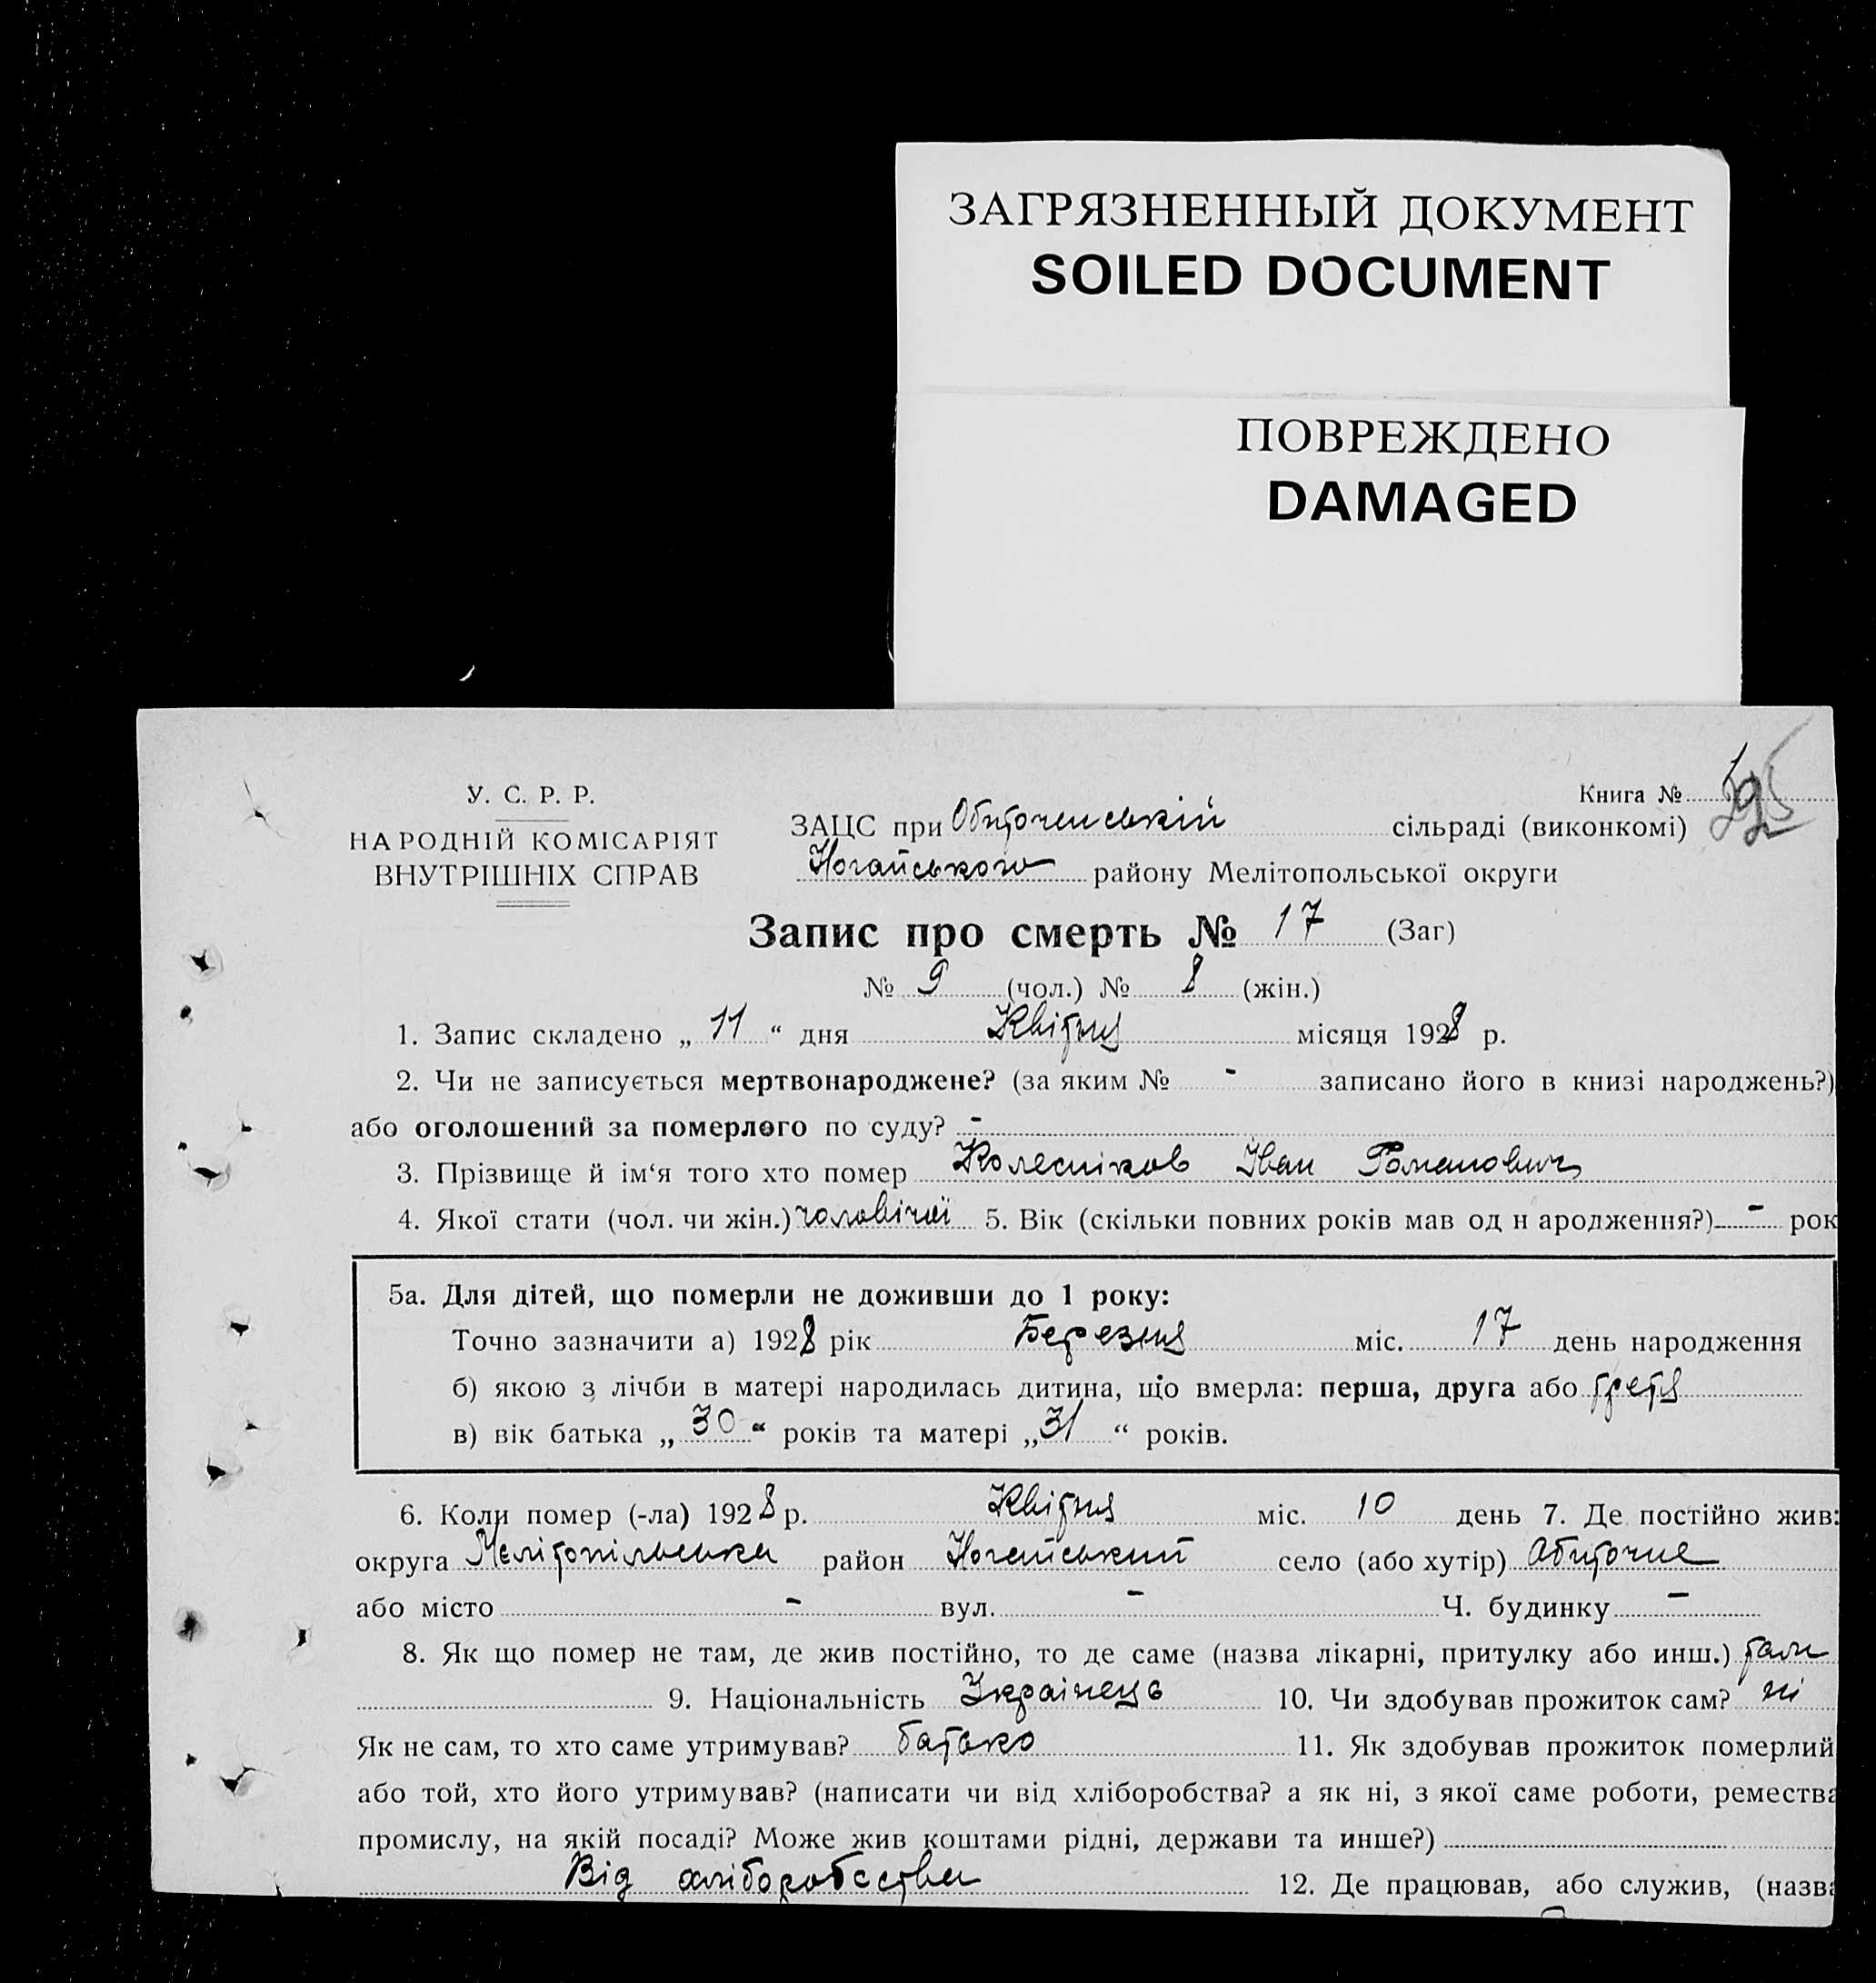 ЗАГРЯЗНЕННЫЙ ДОКУМЕНТ
SOILED DOCUMENT
ПОВРЕЖДЕНО
DAMAGED
У. С. Р. Р.
НАРОДНІЙ КОМІСАРІЯТ
ВНУТРІШНІХ СПРАВ
Книга №
ЗАЦС при Обиточенській сільраді (виконкомі)
Ногайського району Мелітопольської округи
Запис про смерть № 17 (Заг)
№ 9 (чол.) № 8 (жін.)
1. Запис складено „ 11 “ дня Квітня місяця 1928 р.
2. Чи не записується мертвонароджене? (за яким № - записано його в книзі народжень?)
або оголошений за померлого по суду? -
3. Прізвище й ім‘я того хто помер Колесніков Іван Романович
4. Якої стати (чол. чи жін.) чоловічої 5. Вік (скільки повних років мав од н ародження?) - рок
5а. Для дітей, що померли не доживши до 1 року:
Точно зазначити а) 1928 рік Березня міс. 17 день народження
б) якою з лічби в матері народилась дитина, що вмерла: перша, друга або третя
в) вік батька „ 30 “ років та матері „ 31 “ років.
6. Коли помер (-ла) 1928 р. Квітня міс. 10 день 7. Де постійно жив:
округа Мелітопільська район Ногайський село (або хутір) Обиточне
або місто - вул. - Ч. будинку -
8. Як що помер не там, де жив постійно, то де саме (назва лікарні, притулку або инш.) там
9. Національність Українець 10. Чи здобував прожиток сам? ні
Як не сам, то хто саме утримував? батько 11. Як здобував прожиток померлий
або той, хто його утримував? (написати чи від хліборобства? а як ні, з якої саме роботи, ремества
промислу, на якій посаді? Може жив коштами рідні, держави та инше?)
Від хліборобства 12. Де працював, або служив, (назва